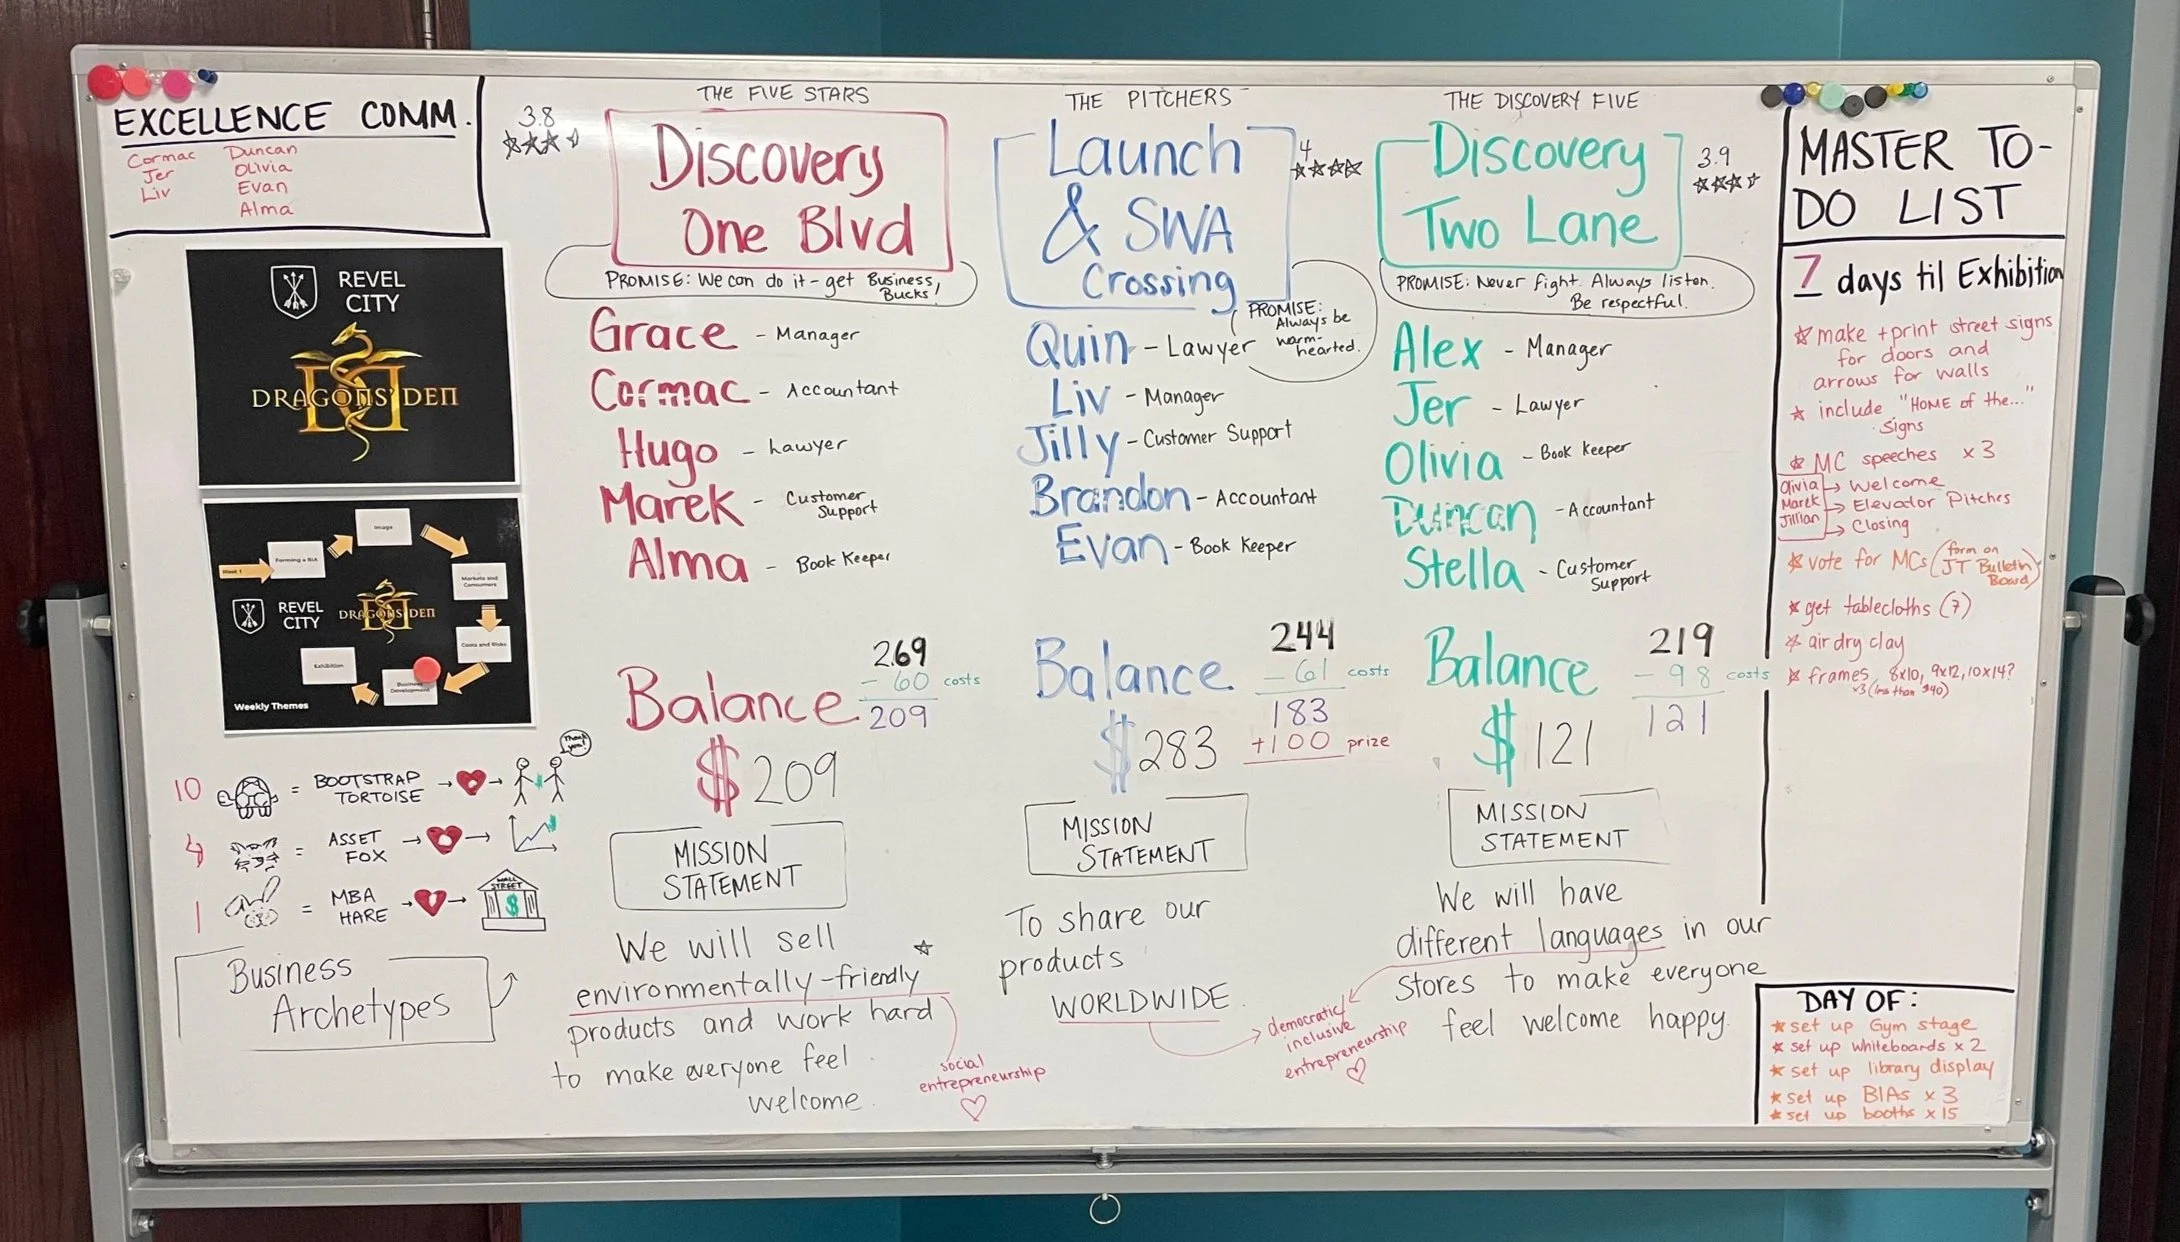 EXCELLENCE COMM.
Cormac
Jer
Liv
Duncan
Olivia
Evan
Alma
REVEL
CITY
DRAGONS' DEN
Week 1
Forming a BIA
Image
Markets and
Consumers
Costs and Risks
Business
Development
Exhibition
REVEL
CITY
DRAGONS' DEN
Weekly Themes
Thank
you!
10 = BOOTSTRAP
TORTOISE
4 = ASSET
FOX
1 = MBA
HARE
WALL
STREET
$
Business
Archetypes
THE FIVE STARS
3.8
Discovery
One Blvd
PROMISE: We can do it - get Business
Bucks!
Grace - Manager
Cormac - Accountant
Hugo - Lawyer
Marek - Customer
Support
Alma - Book Keeper
Balance
269
- 60 costs
209
$209
MISSION
STATEMENT
We will sell
environmentally-friendly
products and work hard
to make everyone feel
welcome.
social
entrepreneurship
THE PITCHERS
4
Launch
& SWA
Crossing
PROMISE:
Always be
warm-
hearted.
Quin - Lawyer
Liv - Manager
Jilly - Customer Support
Brandon - Accountant
Evan - Book Keeper
Balance
244
- 61 costs
183
+100 prize
$283
MISSION
STATEMENT
To share our
products
WORLDWIDE.
democratic/
inclusive
entrepreneurship
THE DISCOVERY FIVE
3.9
Discovery
Two Lane
PROMISE: Never fight. Always listen.
Be respectful.
Alex - Manager
Jer - Lawyer
Olivia - Book Keeper
Duncan - Accountant
Stella - Customer
Support
Balance
219
- 98 costs
121
$121
MISSION
STATEMENT
We will have
different languages in our
stores to make everyone
feel welcome happy.
MASTER TO-
DO LIST
7 days til Exhibition
make + print street signs
for doors and
arrows for walls
include "HOME of the..."
signs
MC speeches x3
Olivia
Marek
Jillian
Welcome
Elevator Pitches
Closing
vote for MCs (form on
JT Bulletin
Board)
get tablecloths (7)
air dry clay
frames 8x10, 9x12, 10x14?
x3 (less than $40)
DAY OF:
set up Gym stage
set up whiteboards x 2
set up library display
set up BIAs x 3
set up booths x 15